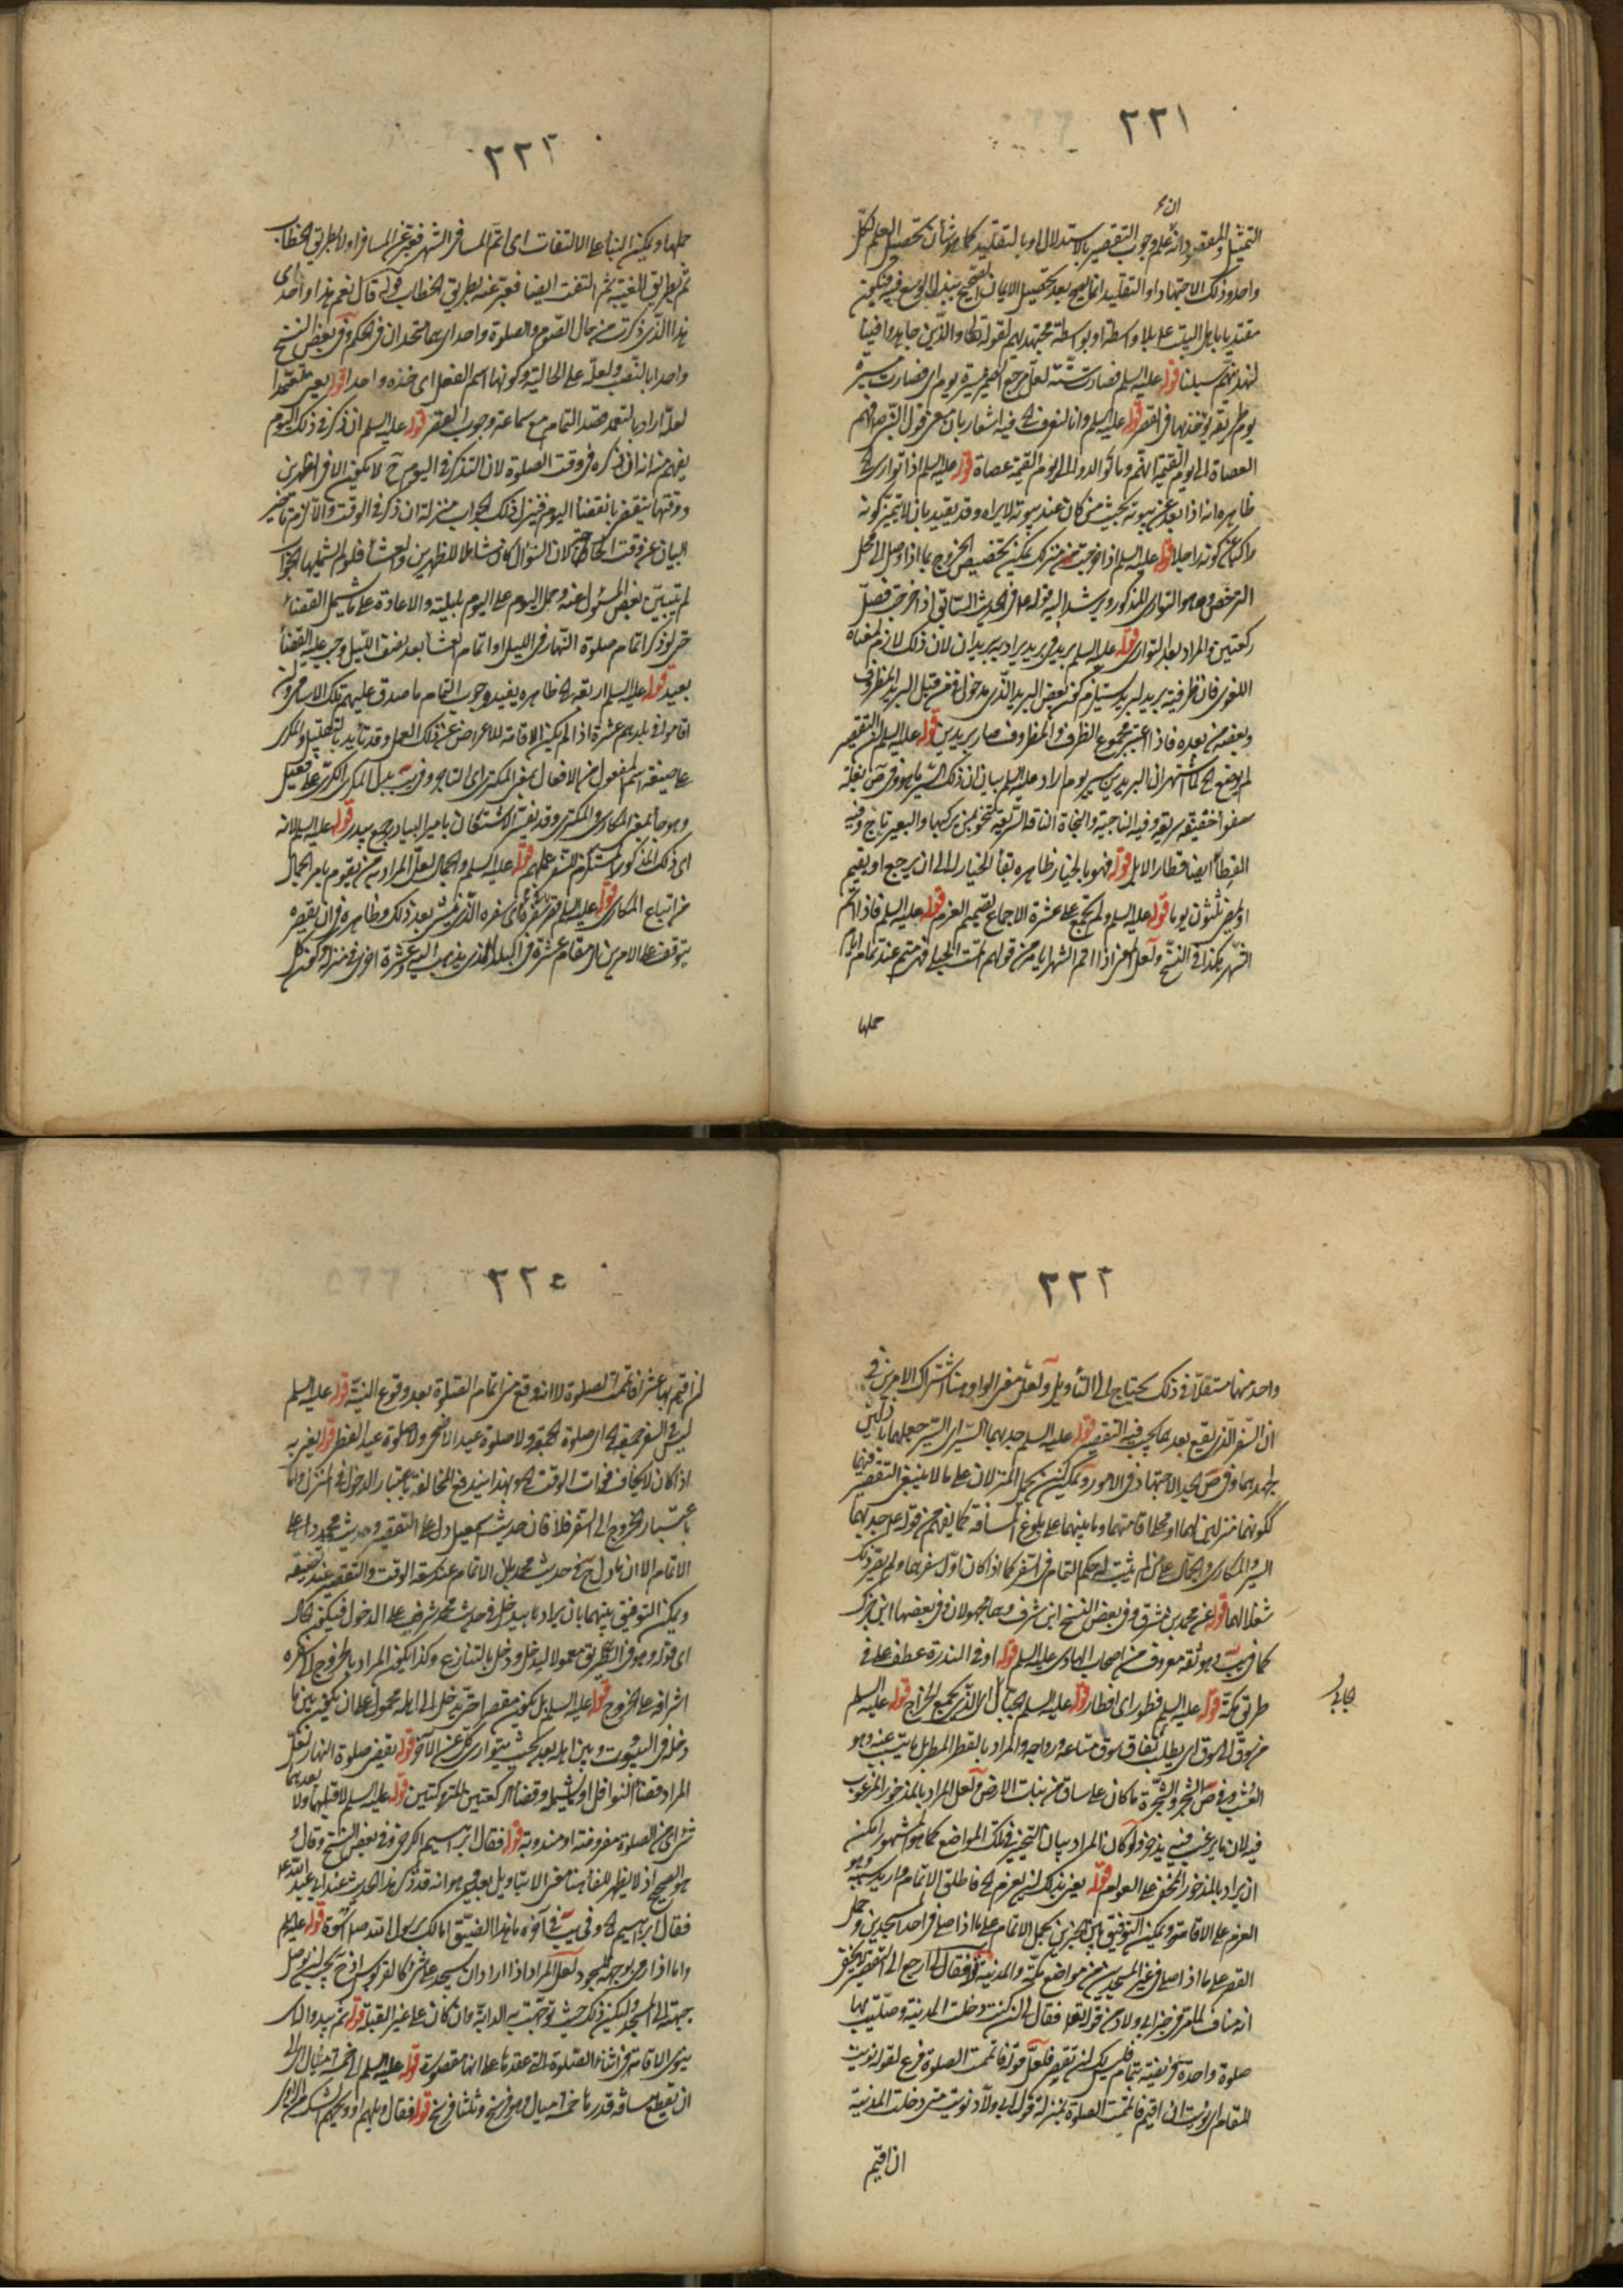 ٢٢١
التمثيل والمقصود انه على وجوب التقصير بالاستدلال او بالتقليد كما هو شأن تحصيل العلم لكل
واحد وذلك الاجتهاد او التقليد انما يصح بعد تحصيل الايمان الصحيح ببذل الوسع فيه فيكون
مقتديا باهل البيت عليه بلا واسطة او بواسطة مجتهديهم لقوله تعالى والذين جاهدوا فينا
لنهدينهم سبلنا قوله عليه السلم فصارت سنة لعل مرجع الضمير مسيرة يوم اى فصارت مسيرة
يوم طريقة يؤخذ بها فى القصر قوله عليه السلم وانا لنعرف الخ فيه اشعار بان معنى قول النبى صلى فهم
العصاة الى يوم القيمة انهم وما توالدوا الى يوم القيمة عصاة قوله عليه السلم اذا توارى الخ
ظاهره انه اذا بعد عن بيوته بحيث من كان عند بيوته لا يراه وقد يقيد بان لا يتميز كونه
راكبا عن كونه راجلا قوله عليه السلم اذا خرجت من منزلك يمكن تخصيص الخروج بما اذا وصل الى محل
الترخص وهو التوارى المذكور ويرشد اليه قوله فى الحديث السابق اذا خرجت فصل
ركعتين والمراد بعد التوارى قوله عليه السلم بريد فى بريد يراد به بريدان لان ذلك لازم لمعناه
اللغوى فان ظرفية بريد لبريد يستلزم كون بعض البريد الذى مدخول فى من قبل البريد المظروف
وبعضه من بعده فاذا اعتبر مجموع الظرف والمظروف صار بريدين قوله عليه السلم لان التقصير
لم يوضع الخ لما اشتهر ان البريدين سير يوم اراد عليه السلم بيان ان ذلك السير ما هو وفى ص بغلة
سفواء خفيفة سريعة وفيه الناجية والنجاة الناقة السريعة تنجو بمن يركبها والبعير ناج وفيه
القطار ايضا قطار الابل قوله فهو بالخيار ظاهره بقاء الخيار له الى ان يرجع او يقيم
او يمضى ثلثون يوما قوله عليه السلم ولم يجمع على عشرة الاجماع تصميم العزم قوله عليه السلم فاذا اتم
الشهر هكذا فى النسخ ولعل المعنى اذا اتم الشهر اياما من قولهم تمت الحبلى فهى متم عند تمام ايام
حملها
٢٢٢
حملها ويمكن البناء على الالتفات اى اتم المسافر الشهر فعبر عن المسافر اولا بطريق الخطاب
ثم بطريق الغيبة ثم التفت ايضا فعبر عنه بطريق الخطاب قوله قال نعم هذا واحد اى
هذا الذى ذكرت من حال الصوم والصلوة واحد اى هما متحدان فى الحكم وفى بعض النسخ
واحدا بالنصب ولعله على الحالية وكونها اسم الفعل اى خذه واحدا قوله يعنى متعمدا
لعله اراد بالتعمد قصد التمام مع سماعته وجوب القصر قوله عليه السلم ان ذكر فى ذلك اليوم
يفهم منه انه ان ذكره فى وقت الصلوة لان التذكر فى اليوم ح لا يكون الا فى الظهرين
ووقتهما ينقضى بانقضاء اليوم فينزل ذلك الجواب منزلة ان ذكر فى الوقت والا لزم تاخير
البيان عن وقت الحاجة لان السؤال كان شاملا للظهرين والعشاء فلو لم يشملها الجواب
لم يتبين بعض المسئول عنه وحمل اليوم على اليوم بليلته والاعادة على ما يشمل القضاء
حتى لو ذكر اتمام صلوة النهار فى الليل او اتمام العشاء بعد نصف الليل وجب عليه القضاء
بعيد قوله عليه السلم اربعة الخ ظاهره يفيد وجوب التمام ما صدق عليهم تلك الاسامى وان
اقاموا فى بلدهم عشرة اذا لم يكن الاقامة للاعراض عن ذلك العمل وقد تأيد بالتعليل والمكرى
على صيغة اسم المفعول من الافعال بمعنى المكترى اى التاجر وفى يب بدل المكرى الكرى على فعيل
وهو جاء بمعنى المكارى والمكترى وقد يفسر الاشتقان بامين البيادر جمع بيدر قوله عليه السلم لانه
اى ذلك المذكور المستلزم للسفر عملهم قوله عليه السلم والجمال لعل المراد به من يقوم بامر الجمال
من اتباع المكارى قوله عليه السلم قصر فى سفره اى سفره الذى ينشئ بعد ذلك وظاهره ان يقصره
يتوقف على الامرين من مقام عشرة فى البلد الذى يذهب اليه وعشرة اخرى فى منزله وكون كل
٢٢٣
واحد منهما مستقلا فى ذلك يحتاج الى التأويل ولعل معنى الواو هنا اشتراك الامرين فى
ان السفر الذى يقع بعدهما يجب فيه التقصير قوله عليه السلم جد بهما السير اى السير جعلهما باذلين
جهدهما وفى ص الجد الاجتهاد فى الامور ويمكن ان يحمل المنزلان على ما لا ينبغى التقصير فيهما
لكونهما منزلين لهما او محل اقامتهما وما بينهما على بلوغ المسافة كما يفهم من قوله جد بهما
السير والمكارى والجمال على من لم يثبت له حكم التمام فى السفر كما اذا كان اول سفرهما ولم يصر ذلك
شغلا لهما قوله عن محمد بن شرف وفى بعض النسخ ابن شرف وهما مجهولان وفى بعضها ابن جزك
كما فى يب وهو ثقة معروف من اصحاب الهادى عليه السلم قوله او فى الندرة عطف على فى
طريق مكة قوله عليه السلم فطور اى افطار قوله عليه السلم الجباة اى الذى يجمع الخراج قوله عليه السلم
من سوق الى سوق اى يطلب نفاق سوق متاعه ورواجه والمراد بالقطر المطر بل ما ينبت عنه وهو
العشب وفى ص الشجر والشجرة ما كان على ساق من نبات الارض ولعل المراد بالمذخور المرغوب
فيه لان ما يرغب فيه يذخر ولو كان المراد بيان التخيير فى تلك المواضع كما هو المشهور امكن
ان يراد بالمذخور المخفى على العوام قوله يعنى بذلك لم يعزم الخ فاطلق الاتمام واريد سببه وهو
العزم على الاقامة ويمكن التوفيق بين الخبرين بحمل الاتمام على ما اذا صلى فى احد المسجدين وحمل
القصر على ما اذا صلى فى غير المسجدين من مواضع مكة والمدينة قوله فقال ارجع الى التقصير لا يخفى
انه مناف لما مر فى خبر ابى ولاد من قوله فقال ان كنت دخلت المدينة وصليت بها
صلوة واحدة فريضة بتمام فليس لك ان تقصر فلعل قوله فاتممت الصلوة فرع لقوله نويت
المقام اى نويت ان اقيم فاتممت الصلوة بمنزلة قول ابى ولاد نويت متى دخلت المدينة
ان اقيم
٢٢٥
ان اقيم بها عشرا فاتممت الصلوة لا انه وقع منى اتمام الصلوة بعد وقوع النية قوله عليه السلم
ليس فى السفر جمعة الخ اى صلوة الجمعة ولا صلوة عيد الاضحى ولا صلوة عيد الفطر قوله يعنى به
اذا كان لا يخاف فوات الوقت الخ وبهذا يندفع المخالفة باعتبار الدخول فى المنزل واما
باعتبار الخروج الى السفر فلا فان حديث اسمعيل دل على التقصير وحديث محمد دل على
الاتمام الا ان ياول ح حديث محمد بان الاتمام عند سعة الوقت والتقصير عند تضيقه
ويمكن التوفيق بينهما بان يراد بما يدخل فى حديث محمد يشرف على الدخول فيكون حال
اى قوله وهو فى الطريق معمولا ليدخل ودخل بالتنازع وكذا يكون المراد بالخروج الى سفره
اشرافه على الخروج قوله عليه السلم بل يكون مقصرا حتى يدخل الى اهله محمول على ان يكون بين ما
دخله فى البيوت وبين اهله بعد بحيث يتوارى عنه الاذان قوله يقضى صلوة النهار لعل
المراد قضاء النوافل او يشمله وقضاء الركعتين المتروكتين قوله عليه السلم لا قبلهما ولا بعدهما
شئ اى من الصلوة مفروضة او مندوبة قوله فقال ابرهيم الكرخى وفى بعض النسخ وقال و
هو الصحيح اذ لا يظهر للفاء هنا معنى الا بتاويل بعيد وهو انه قد ذكر هذا الحديث عند ابى عبد الله ع
فقال ابرهيم الخ وفى يب فى آخره ما هذا الضيق اما لك برسول الله صلى اسوة قوله عليه السلم
واما اذا رمى بوجهه للسجود لعل المراد اذا اراد ان يسجد على شئ كالقربوس اذ ح يجب ان يوصل
جبهته الى المسجد وليكن ذلك حيث توجهت به الدابة وان كان على غير القبلة قوله ثم يبدو له ان
ينوى الاقامة فى اثناء الصلوة التى عقدها على انها مقصورة قوله عليه السلم خمسة اميال اى الى
ان تقطع مسافة قدرها خمسة اميال وهو فرسخ وثلثا فرسخ قوله فقال ويلهم او ويحهم الشك من الراوى